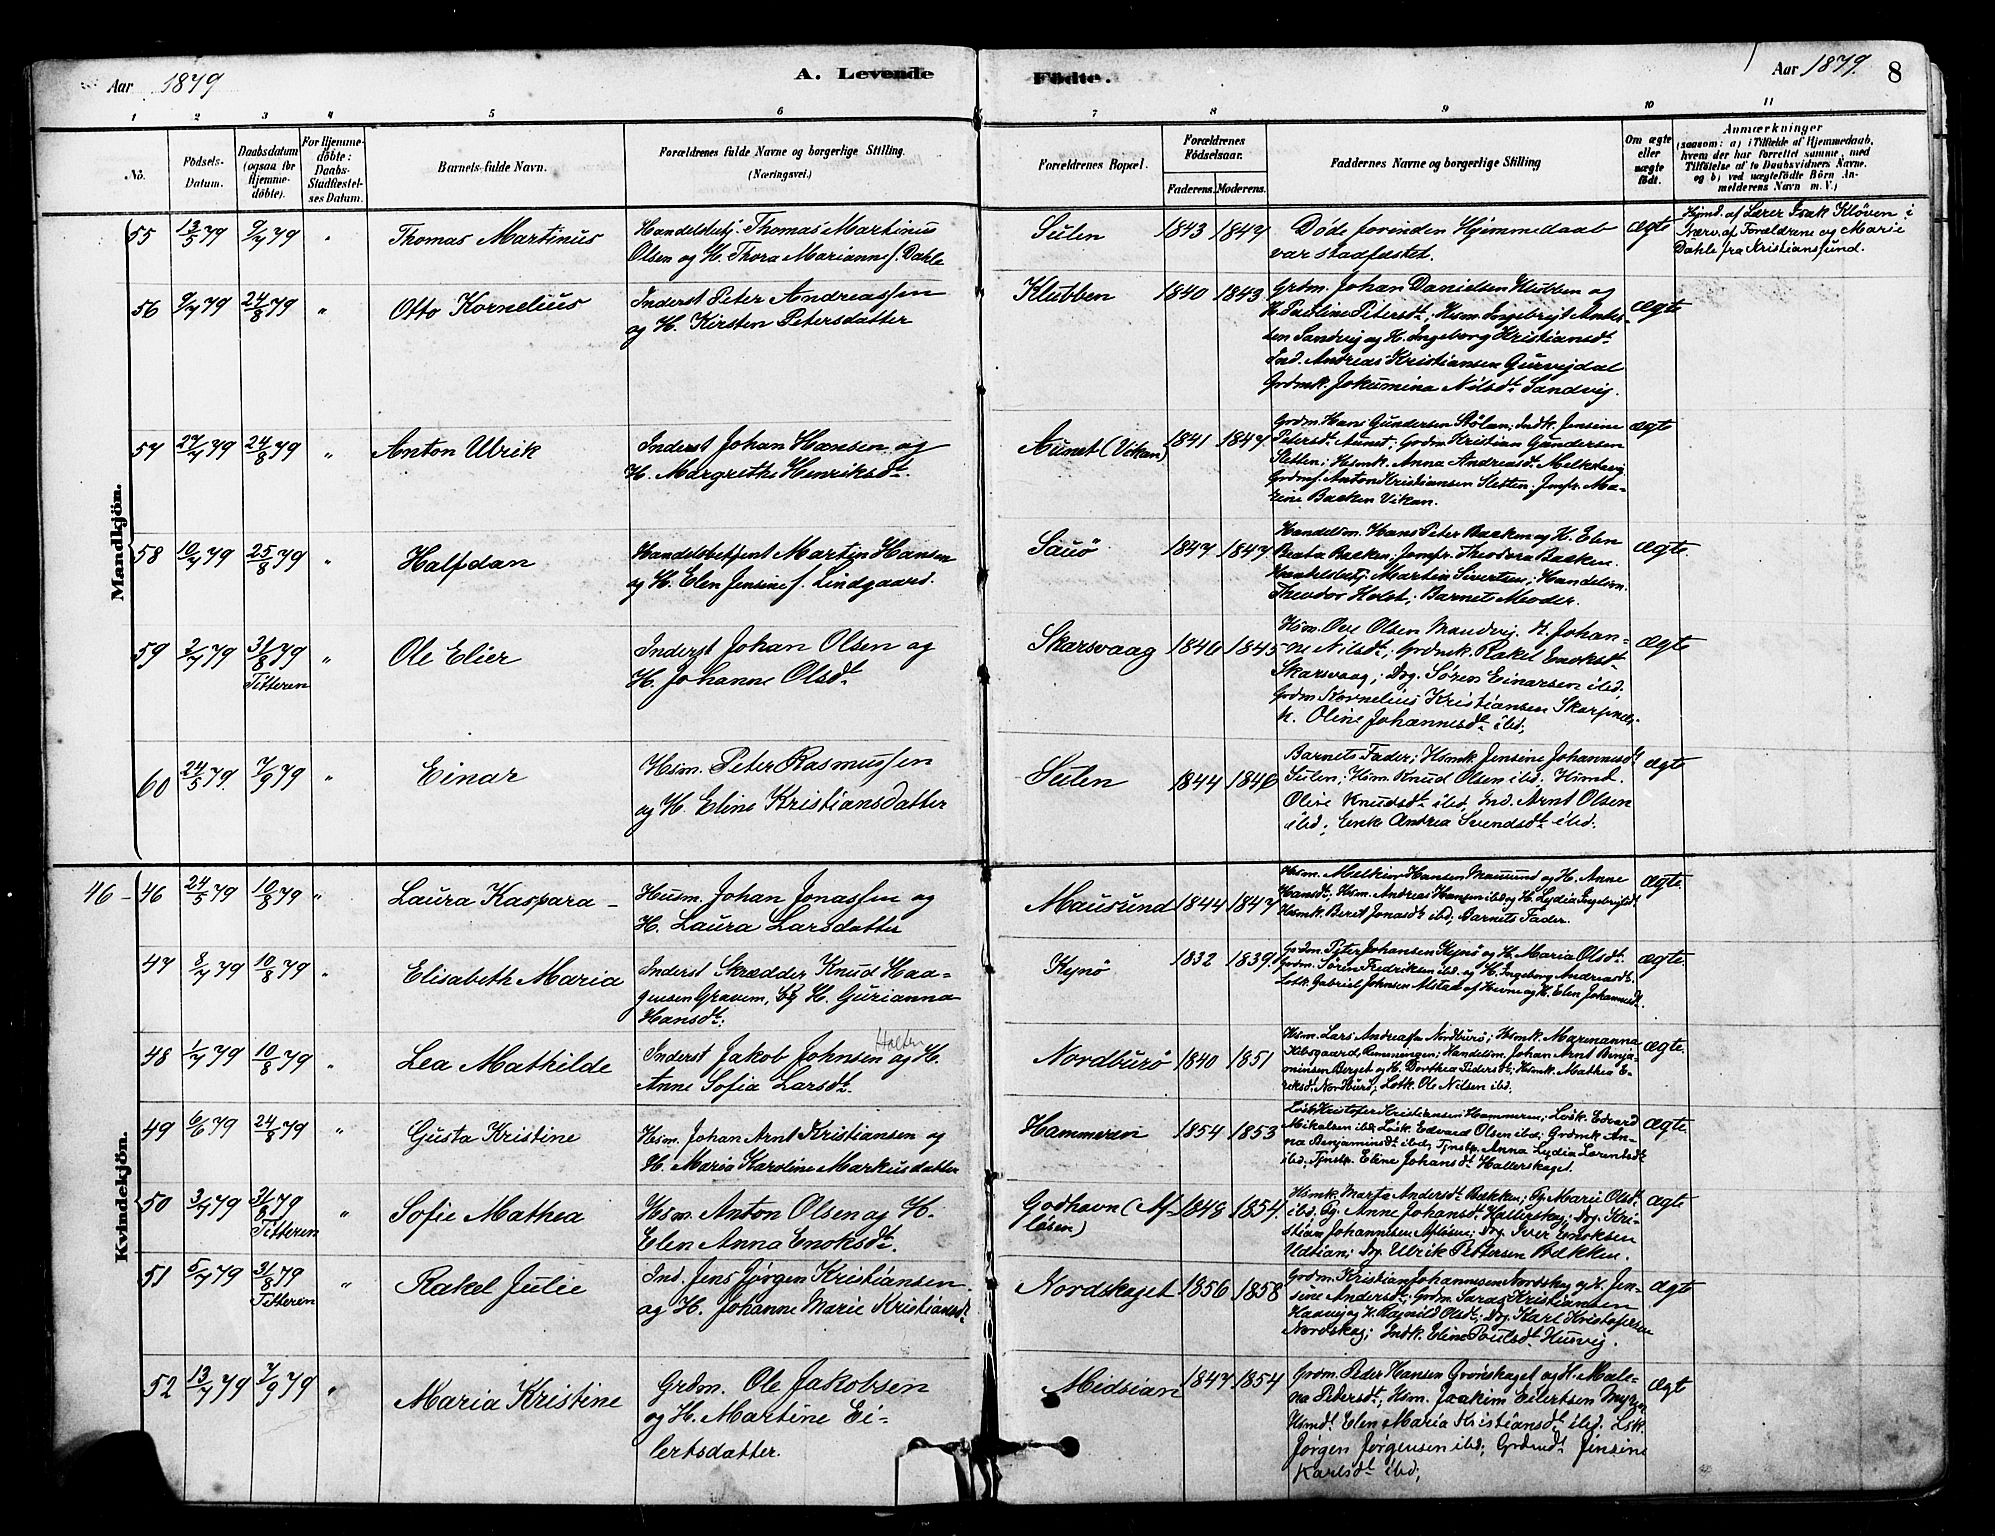 Aar 1879 A. Levende Födte. Aar 1879. 8
1 2 3 4 5 6 7 8 9 10 11
No.
Födsels-Datum.
Daabsdatum (ogsaa for Hjemme-döbte).
For Hjemme-döbte: Daabs-Stadfæstel-ses Datum.
Barnets fulde Navn.
Forældrenes fulde Navne og borgerlige Stilling.
(Næringsvei.)
Forældrenes Bopæl.
Forældrenes Födselsaar.
Faderens. Moderens.
Faddernes Navne og borgerlige Stilling
Om ægte eller uægte födt.
Anmærkninger
(saasom: a) i Tilfælde af Hjemmedaab,
hvem der har forrettet samme, med
Tilföielse af to Daabsvidners Navne,
og b) ved uægtefödte Börn An-
melderens Navn m. V.)
Mandkjön.
55 13/5 79 9/7 79 " Thomas Martinus
Handelsbetj. Thomas Martinus
Olsen og H. Thora Marianne f. Dahle
Sulen 1843 1847
Døde forinden Hjemmedaab
var stadfæstet.
ægte
Hjmd. af Lærer Isak Kløven i
Nærv. af Forældrene og Marie
Dahle fra Kristiansund.
56 9/7 79 24/8 79 " Otto Kornelius
Inderst Peter Andreassen
og H. Kirsten Petersdatter
Klubben 1840 1843
Grdm. Johan Danielsen Klubben og
H. Pauline Petersdt; Hsm. Ingebrigt
Sandvig og H. Ingeborg Kristiansdt.
Ind. Andreas Kristiansen Gurvigdal
Grdmk. Jokumina Nilsdt Sandvig.
ægte
57 27/7 79 24/8 79 " Anton Ulrik
Inderst Johan Hansen og
H. Margrethe Henriksdt.
Aunet (Vikan) 1841 1847
Grdm. Hans Gundersen Stølan; Indk. Jensine
Petersdt Aunet; Grdm. Kristian Gundersen
Sletten; Hsmk. Anna Andreasdt
Anton Kristiansen Sletten; Jomfr. Ma-
rine Backen Vikan.
ægte
58 10/7 79 25/8 79 " Halfdan
Handelsbetjent Martin Hansen
og H. Elen Jensine f. Lindgaard.
Sauø 1847 1847
Handelsm. Hans Peter Backen og H. Elen
Beata Backen; Jomfr. Theodora Backen.
Handelsbetj. Martin Sivertsen; Handelsm.
Theodor Holst; Barnets Moder.
ægte
59 2/7 79 31/8 79 Titteren " Ole Elier
Inderst Johan Olsen og
H. Johanne Olsdt
Skarsvaag 1846 1845
Hsm. Ove Olsen Mandvig. H. Johan-
ne Nilsdt; Grdmk. Rakel Enoksdt
Skarsvaag; Drg. Søren Einarsen ibd.
Grdm. Kornelius Kristiansen
H. Oline Johannesdt ibd;
Ægte
60 24/5 79. 7/9 79 " Einar
Hsm. Peter Rasmussen
og H. Eline Kristiansdatter
Sulen 1844 1846
Barnets Fader; Hsmk Jensine Johannesdt
Sulen; Hsm. Knud Olsen ibd; Hsmd.
Oline Knudsdt ibd, Ind. Arnt Olsen
ibd; Enk Andrea Svendsdt ibd.
ægte
Kvindekjön.
46 - 46 24/5 79 10/8 79 " Laura Kaspara -
Husm. Johan Jonassen og
H. Laura Larsdatter
Mausund 1844 1847
Hsm. Melkior Hansen Mausund og H. Anne
Hansdt; Hsm. Andreas Hansen ibd og H. Lydia Ingebrigtdt
Hsmk. Beret Jonasdt ibd; Barnets Fader.
ægte.
47 8/7 79 10/8 79 " Elisabeth Maria
Inderst Skrædder Knud Haa-
gensen Gravem, og H. Gurianna
Hansdt;
Kynø 1832 1839.
Grdm. Peter Johansen Kynø og H. Maria Olsdt.
Grdm. Søren Fredriksen ibd. og H. Ingeborg Andreasdt.
Losk. Gabriel Johnsen Alstad af Hevne og H. Elen Johannesdt.
ægte.
48 1/7 79 10/8 79 " Lea Mathilde
Halten
Inderst Jakob Johnsen og H.
Anne Sofia Larsdt.
Nordburø 1840 1851
Hsm. Lars Andreassen Nordburø; Hsmk. Marianna
Handelsm. Johan Arnt Benja-
minsen Berget og H. Dorthea Pedersdt; Hsmk. Mathea E-
riksdt Nordburø; Losk. Ole Nilsen ibd.
ægte.
49 6/6 79 24/8 79 " Gusta Kristine
Hsm. Johan Arnt Kristiansen og
H. Maria Karoline Markusdatter
Hammeren 1854 1853
Losk Kristofer Kristiansen Hammeren; Losk. Edvard
Mikalsen ibd; Losk. Edvard Olsen ibd; Grdmk An-
na Benjaminsdt ibd; Tjnstp. Anna Lydia Lorentsdt
ibd; Tjnstp. Eline Johansdt Hallerskaget.
ægte.
50 3/7 79 31/8 79 Titteren " Sofie Mathea
Hsm. Anton Olsen og H.
Elen Anna Enoksdt.
Godhavn (Af-
løsen) 1848 1854.
Hsmk. Marta Andersdt Bekken; Pg. Marie Olsdt
ibd. Pg. Anne Johansdt Hallerskag; Drg. Kri-
stian Johannesen Afløsen; Drg. Iver Enoksen
Udtian; Drg. Ulrik Pettersen Bekken.
ægte
51 5/7 79 31/8 79 Titteren " Rakel Julie
Ind. Jens Jørgen Kristiansen
og H. Johanne Marie Kristiansdt
Nordskaget 1856 1858
Grdm. Kristian Johannesen Nordskag og H. Jen-
sine Andersdt; Grdm. Kristiansen
og H. Ragnild Olsdt; Drg. Karl Kristofersen
Nordskag; Indk. Eline Poulsdt Husvig.
Ægte
52 13/7 79 7/9 79 " Maria Kristine
Grdm. Ole Jakobsen
og H. Martine Ei-
lertsdatter.
Midsian 1847 1854
Grdm. Peder Hansen Grønskaget og H. Male-
na Pedersdt; Hsm. Joakim Eilertsen Myren
Hsmdt Elen Maria Kristiansdt ibd. Lsk.
Jørgen Jørgensen ibd; Grdmdt Jensine
Karlsdt ibd;
ægt